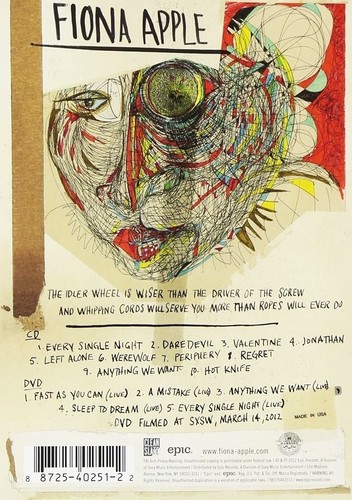 FIONA APPLE
THE IDLER WHEEL IS WISER THAN THE DRIVER OF THE SCREW
AND WHIPPING CORDS WILL SERVE YOU MORE THAN ROPES WILL EVER DO
CD
1. EVERY SINGLE NIGHT 2. DAREDEVIL 3. VALENTINE 4. JONATHAN
5. LEFT ALONE 6. WEREWOLF 7. PERIPHERY 8. REGRET
9. ANYTHING WE WANT 10. HOT KNIFE
DVD
1. FAST AS YOU CAN (LIVE) 2. A MISTAKE (LIVE) 3. ANYTHING WE WANT (LIVE)
4. SLEEP TO DREAM (LIVE) 5. EVERY SINGLE NIGHT (LIVE)
DVD FILMED AT SXSW, MARCH 14, 2012
MADE IN USA
CLEAN SLATE epic www.fiona-apple.com
8 88725-40251-2 2